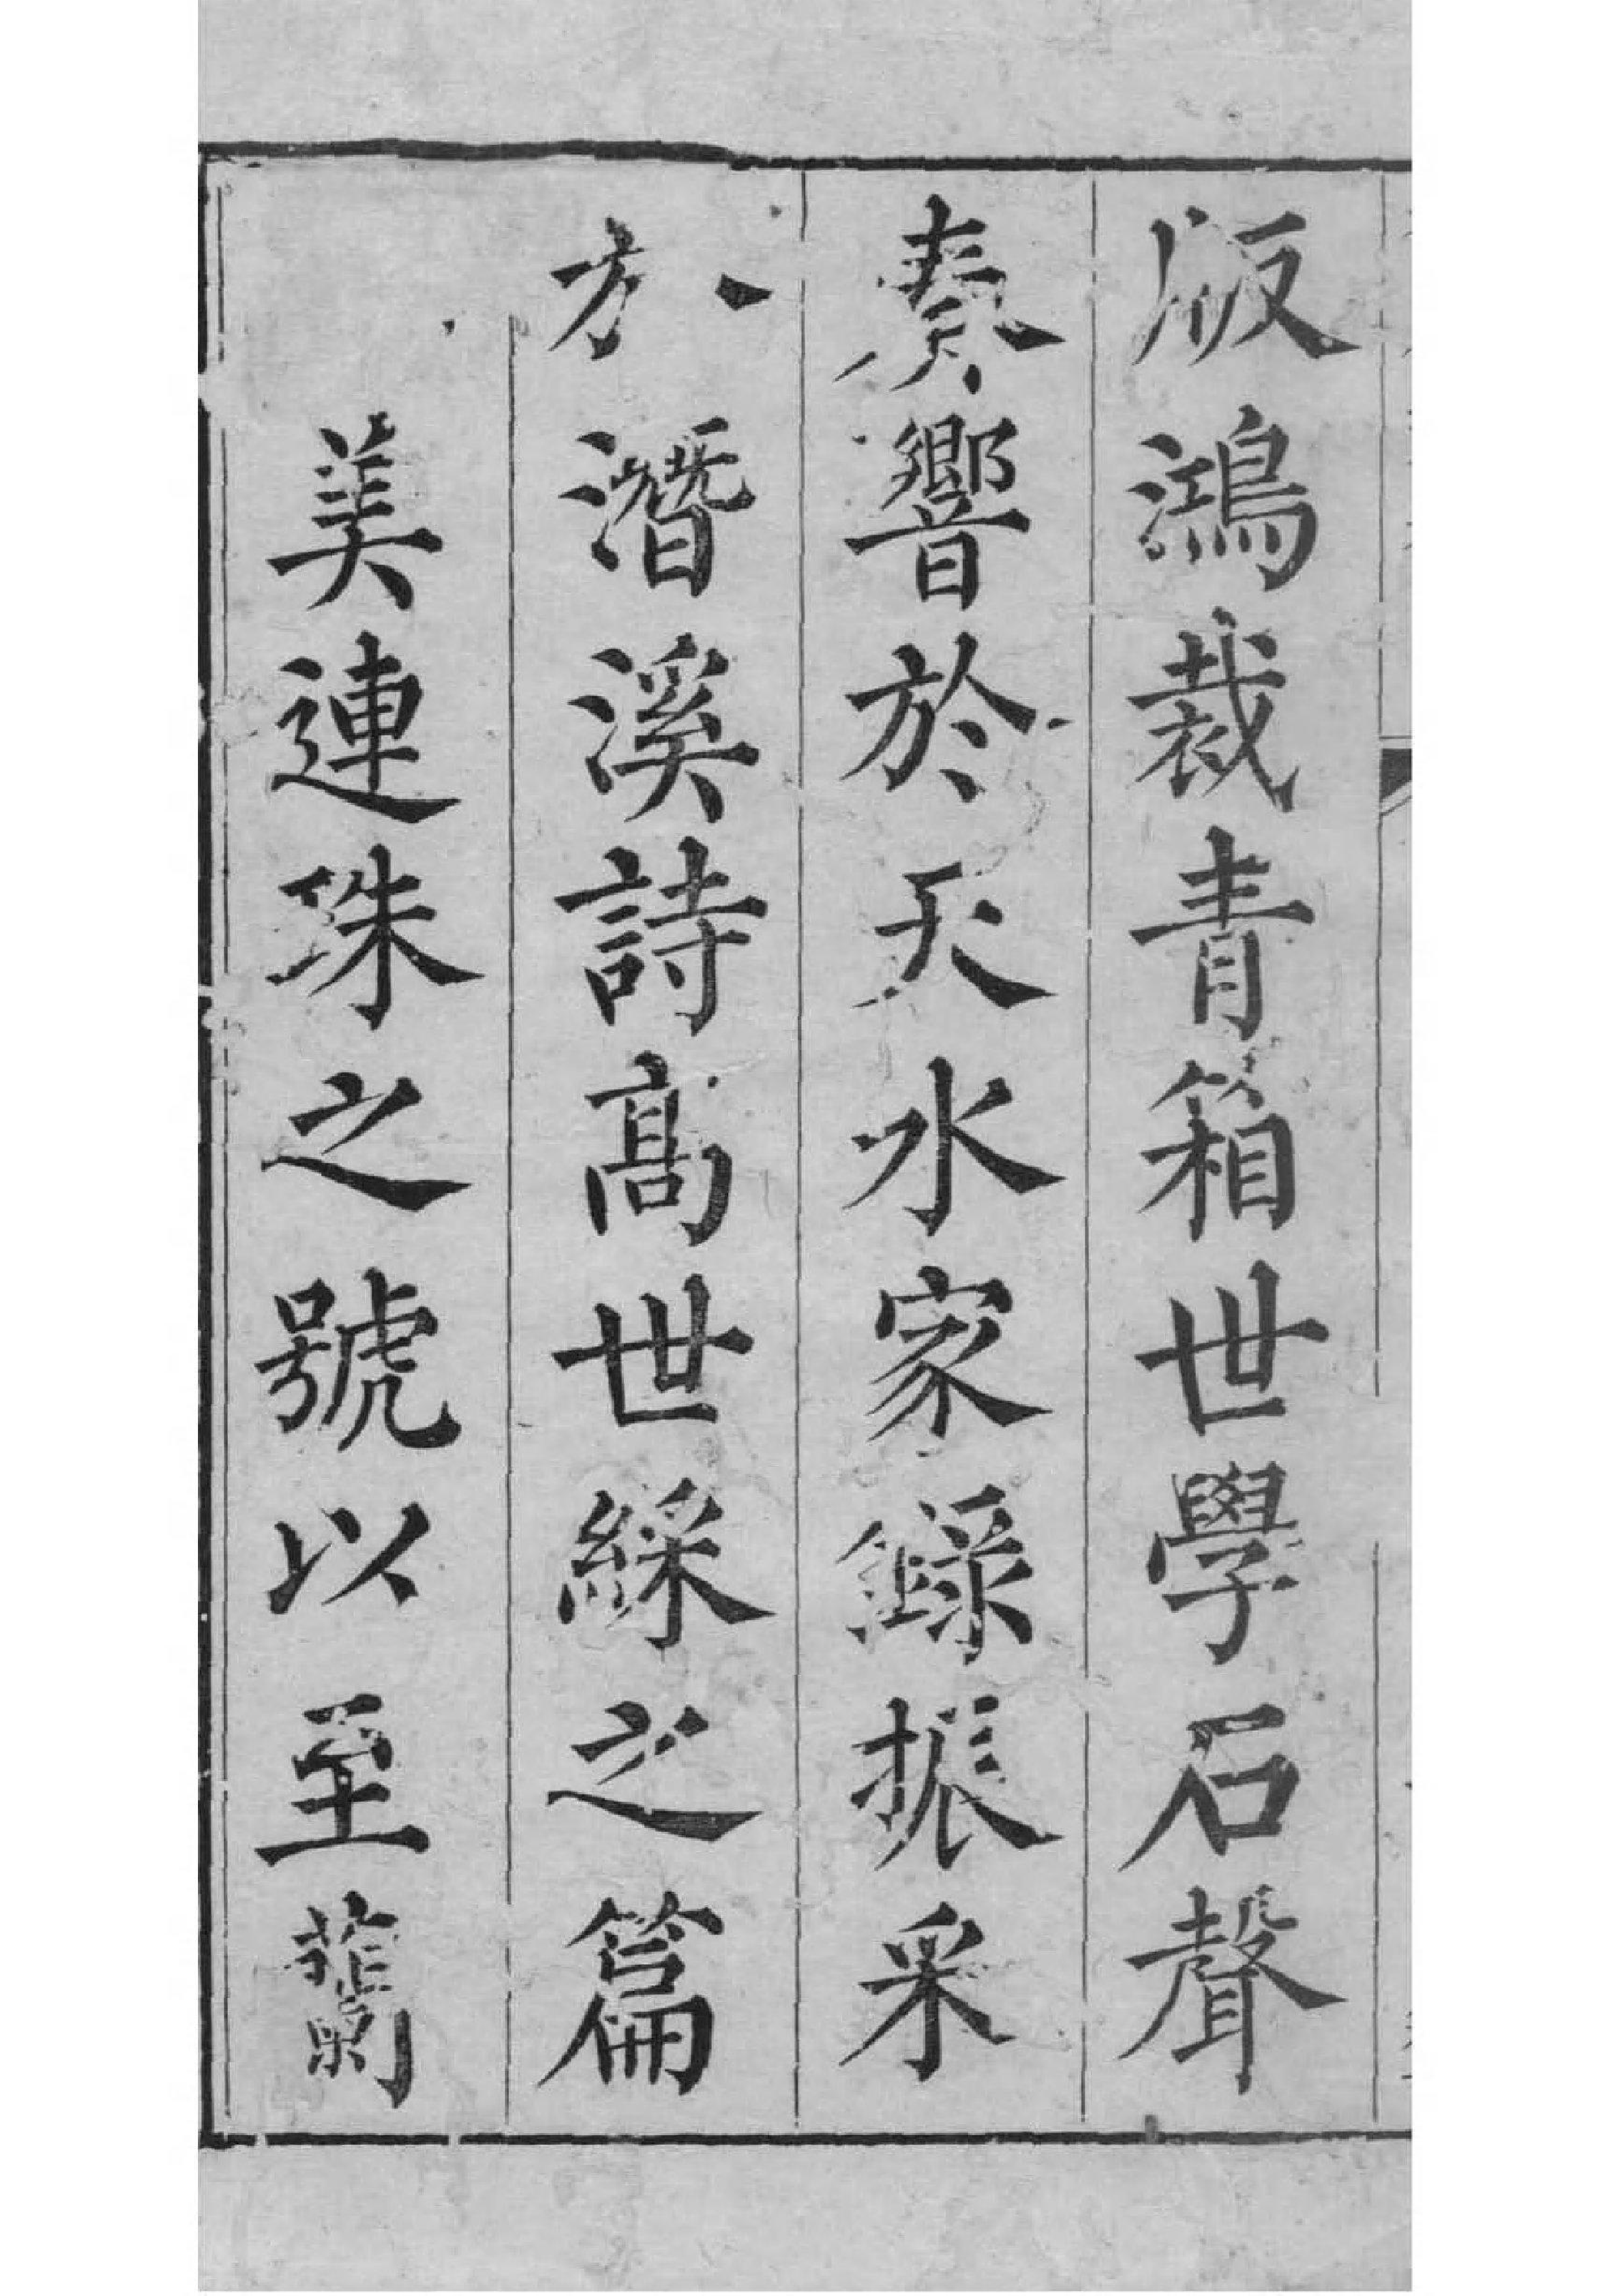 版鴻裁青箱世學石聲
奏響於天水家錄振采
於潛溪詩高世綵之篇
美連珠之號以至蘭